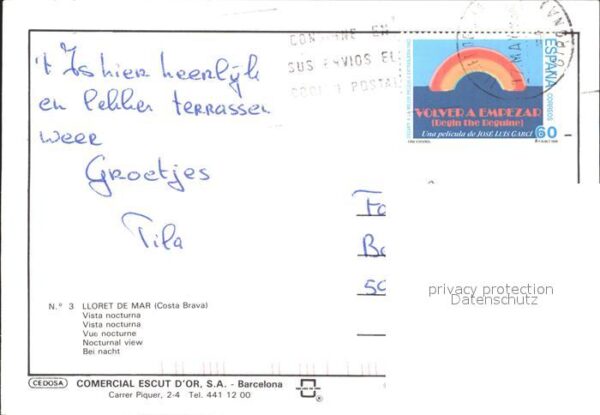 't Is hier heerlijk
en lekker terrassen
weer
Groetjes
Tila
CONSIGNE EN
SUS ENVIOS EL
CODIGO POSTAL
ESPAÑA
CORREOS
VOLVER A EMPEZAR
(Begin the Beguine)
Una película de JOSÉ LUIS GARCI
60
Fa
Ba
50
privacy protection
Datenschutz
N.° 3 LLORET DE MAR (Costa Brava)
Vista nocturna
Vista nocturna
Vue nocturne
Nocturnal view
Bei nacht
CEDOSA COMERCIAL ESCUT D'OR, S.A. - Barcelona
Carrer Piquer, 2-4 Tel. 441 12 00